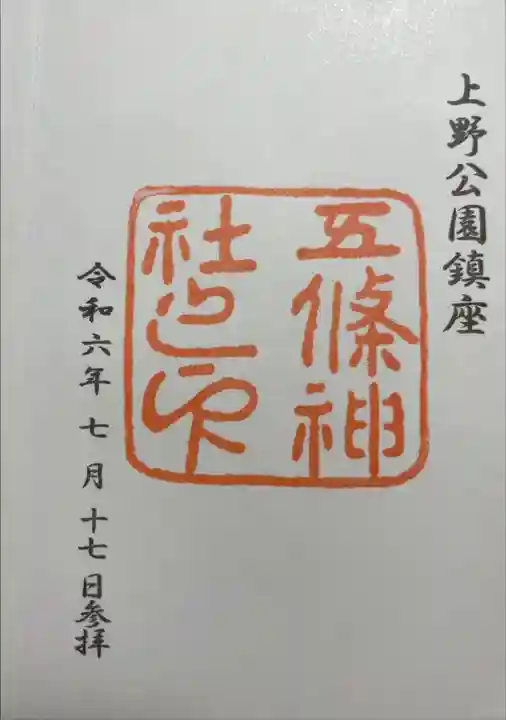 上野公園鎮座
五條神
社之印
令和六年七月十七日参拝